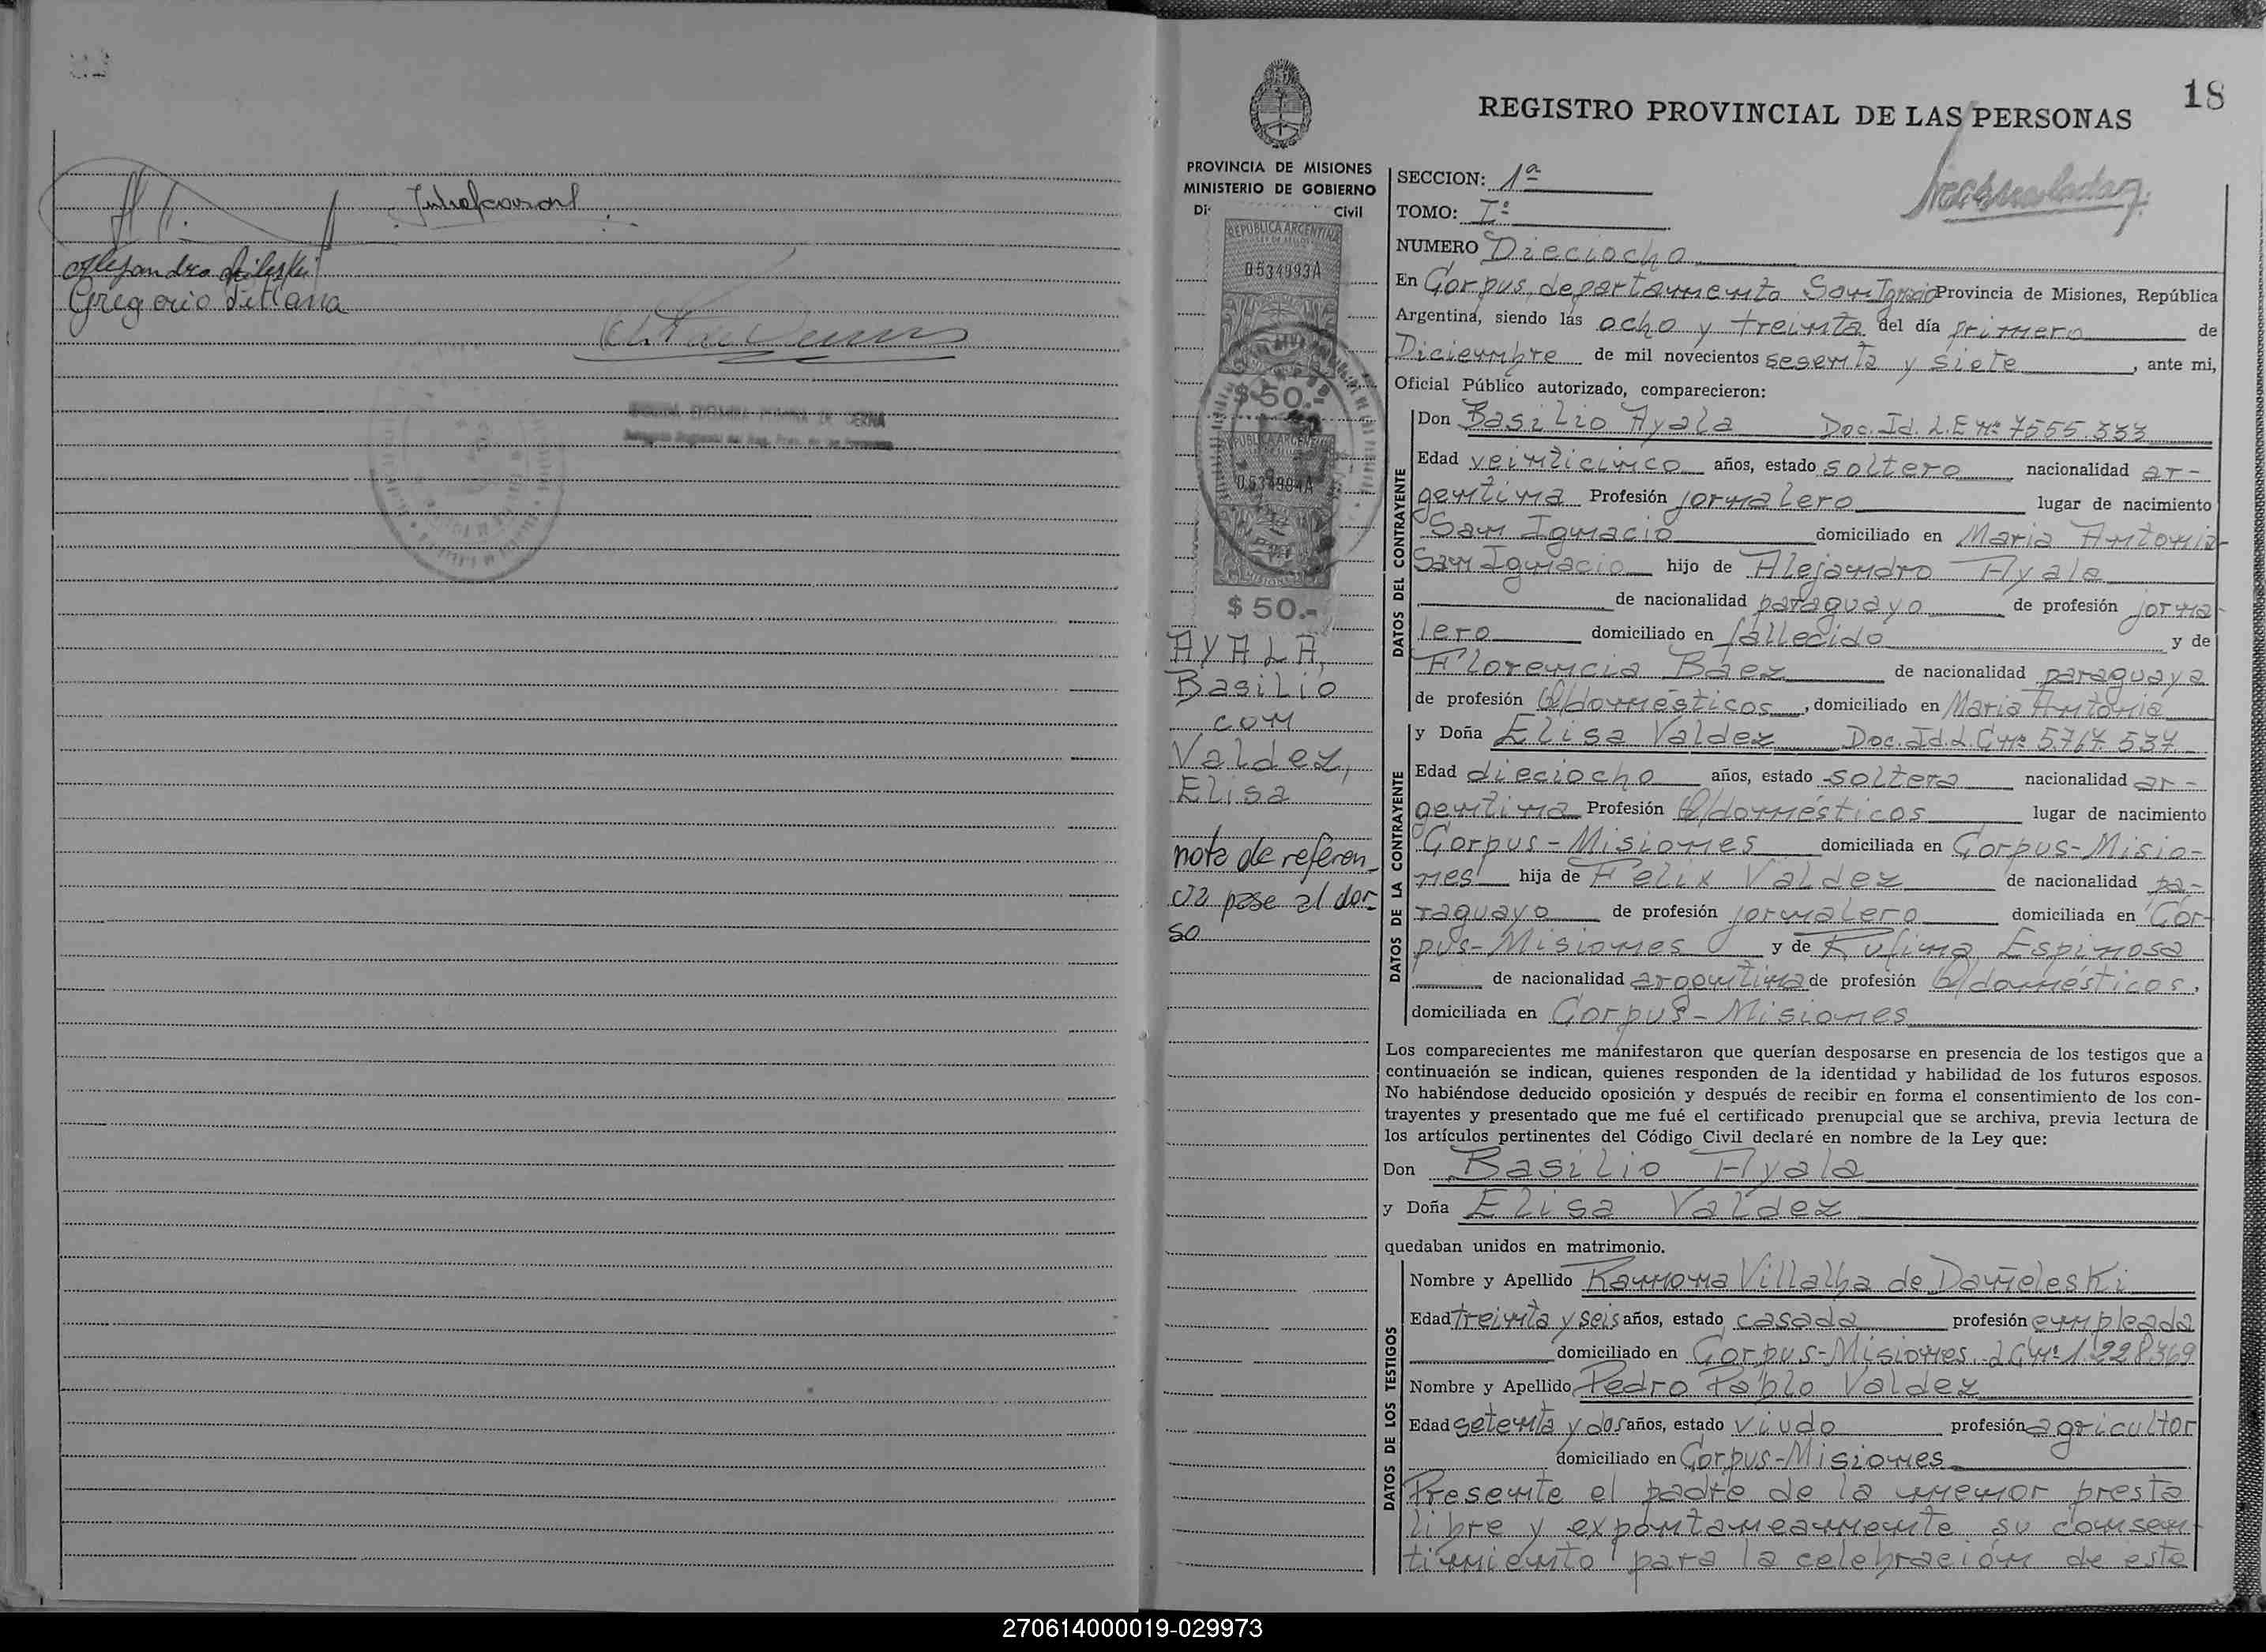 Alejandro
Gregorio
18
REGISTRO PROVINCIAL DE LAS PERSONAS
PROVINCIA DE MISIONES
MINISTERIO DE GOBIERNO
Civil
REPUBLICA ARGENTINA
0534993A
$50.-
$ 50.-
AYALA,
Basilio
con
Valdez,
Elisa
nota de referen-
cia pase al dor-
so
SECCION: 1ª
TOMO: Iº
NUMERO Dieciocho
En Corpus, departamento San Ignacio Provincia de Misiones, República
Argentina, siendo las ocho y treinta del día primero de
Diciembre de mil novecientos sesenta y siete, ante mi,
Oficial Público autorizado, comparecieron:
DATOS DEL CONTRAYENTE
Don Basilio Ayala Doc. Id. L.E nº 7555.333
Edad veinticinco años, estado soltero nacionalidad ar-
gentina Profesión jornalero lugar de nacimiento
San Ignacio domiciliado en Maria Antonia-
San Ignacio hijo de Alejandro Ayala
de nacionalidad paraguayo de profesión jorna-
lero domiciliado en fallecido y de
Florencia Baez de nacionalidad paraguaya
de profesión Q/domésticos, domiciliado en Maria Antonia
DATOS DE LA CONTRAYENTE
y Doña Elisa Valdez Doc. Id. L.C nº 5.767.537
Edad dieciocho años, estado soltera nacionalidad ar-
gentina Profesión Q/domésticos lugar de nacimiento
Corpus-Misiones domiciliada en Corpus-Misio-
nes hija de Felix Valdez de nacionalidad pa-
raguayo de profesión jornalero domiciliada en Cor-
pus-Misiones y de Rufina Espinosa
de nacionalidad argentina de profesión Q/domésticos,
domiciliada en Corpus-Misiones
Los comparecientes me manifestaron que querían desposarse en presencia de los testigos que a
continuación se indican, quienes responden de la identidad y habilidad de los futuros esposos.
No habiéndose deducido oposición y después de recibir en forma el consentimiento de los con-
trayentes y presentado que me fué el certificado prenupcial que se archiva, previa lectura de
los artículos pertinentes del Código Civil declaré en nombre de la Ley que:
Don Basilio Ayala
y Doña Elisa Valdez
quedaban unidos en matrimonio.
DATOS DE LOS TESTIGOS
Nombre y Apellido Ramona Villalba de Danieleski
Edad treinta y seis años, estado casada profesión empleada
domiciliado en Corpus-Misiones. LC nº 1.228369
Nombre y Apellido Pedro Pablo Valdez
Edad setenta y dos años, estado viudo profesión agricultor
domiciliado en Corpus-Misiones
Presente el padre de la menor presta
libre y expontaneamente su consen-
timiento para la celebración de este
270614000019-029973